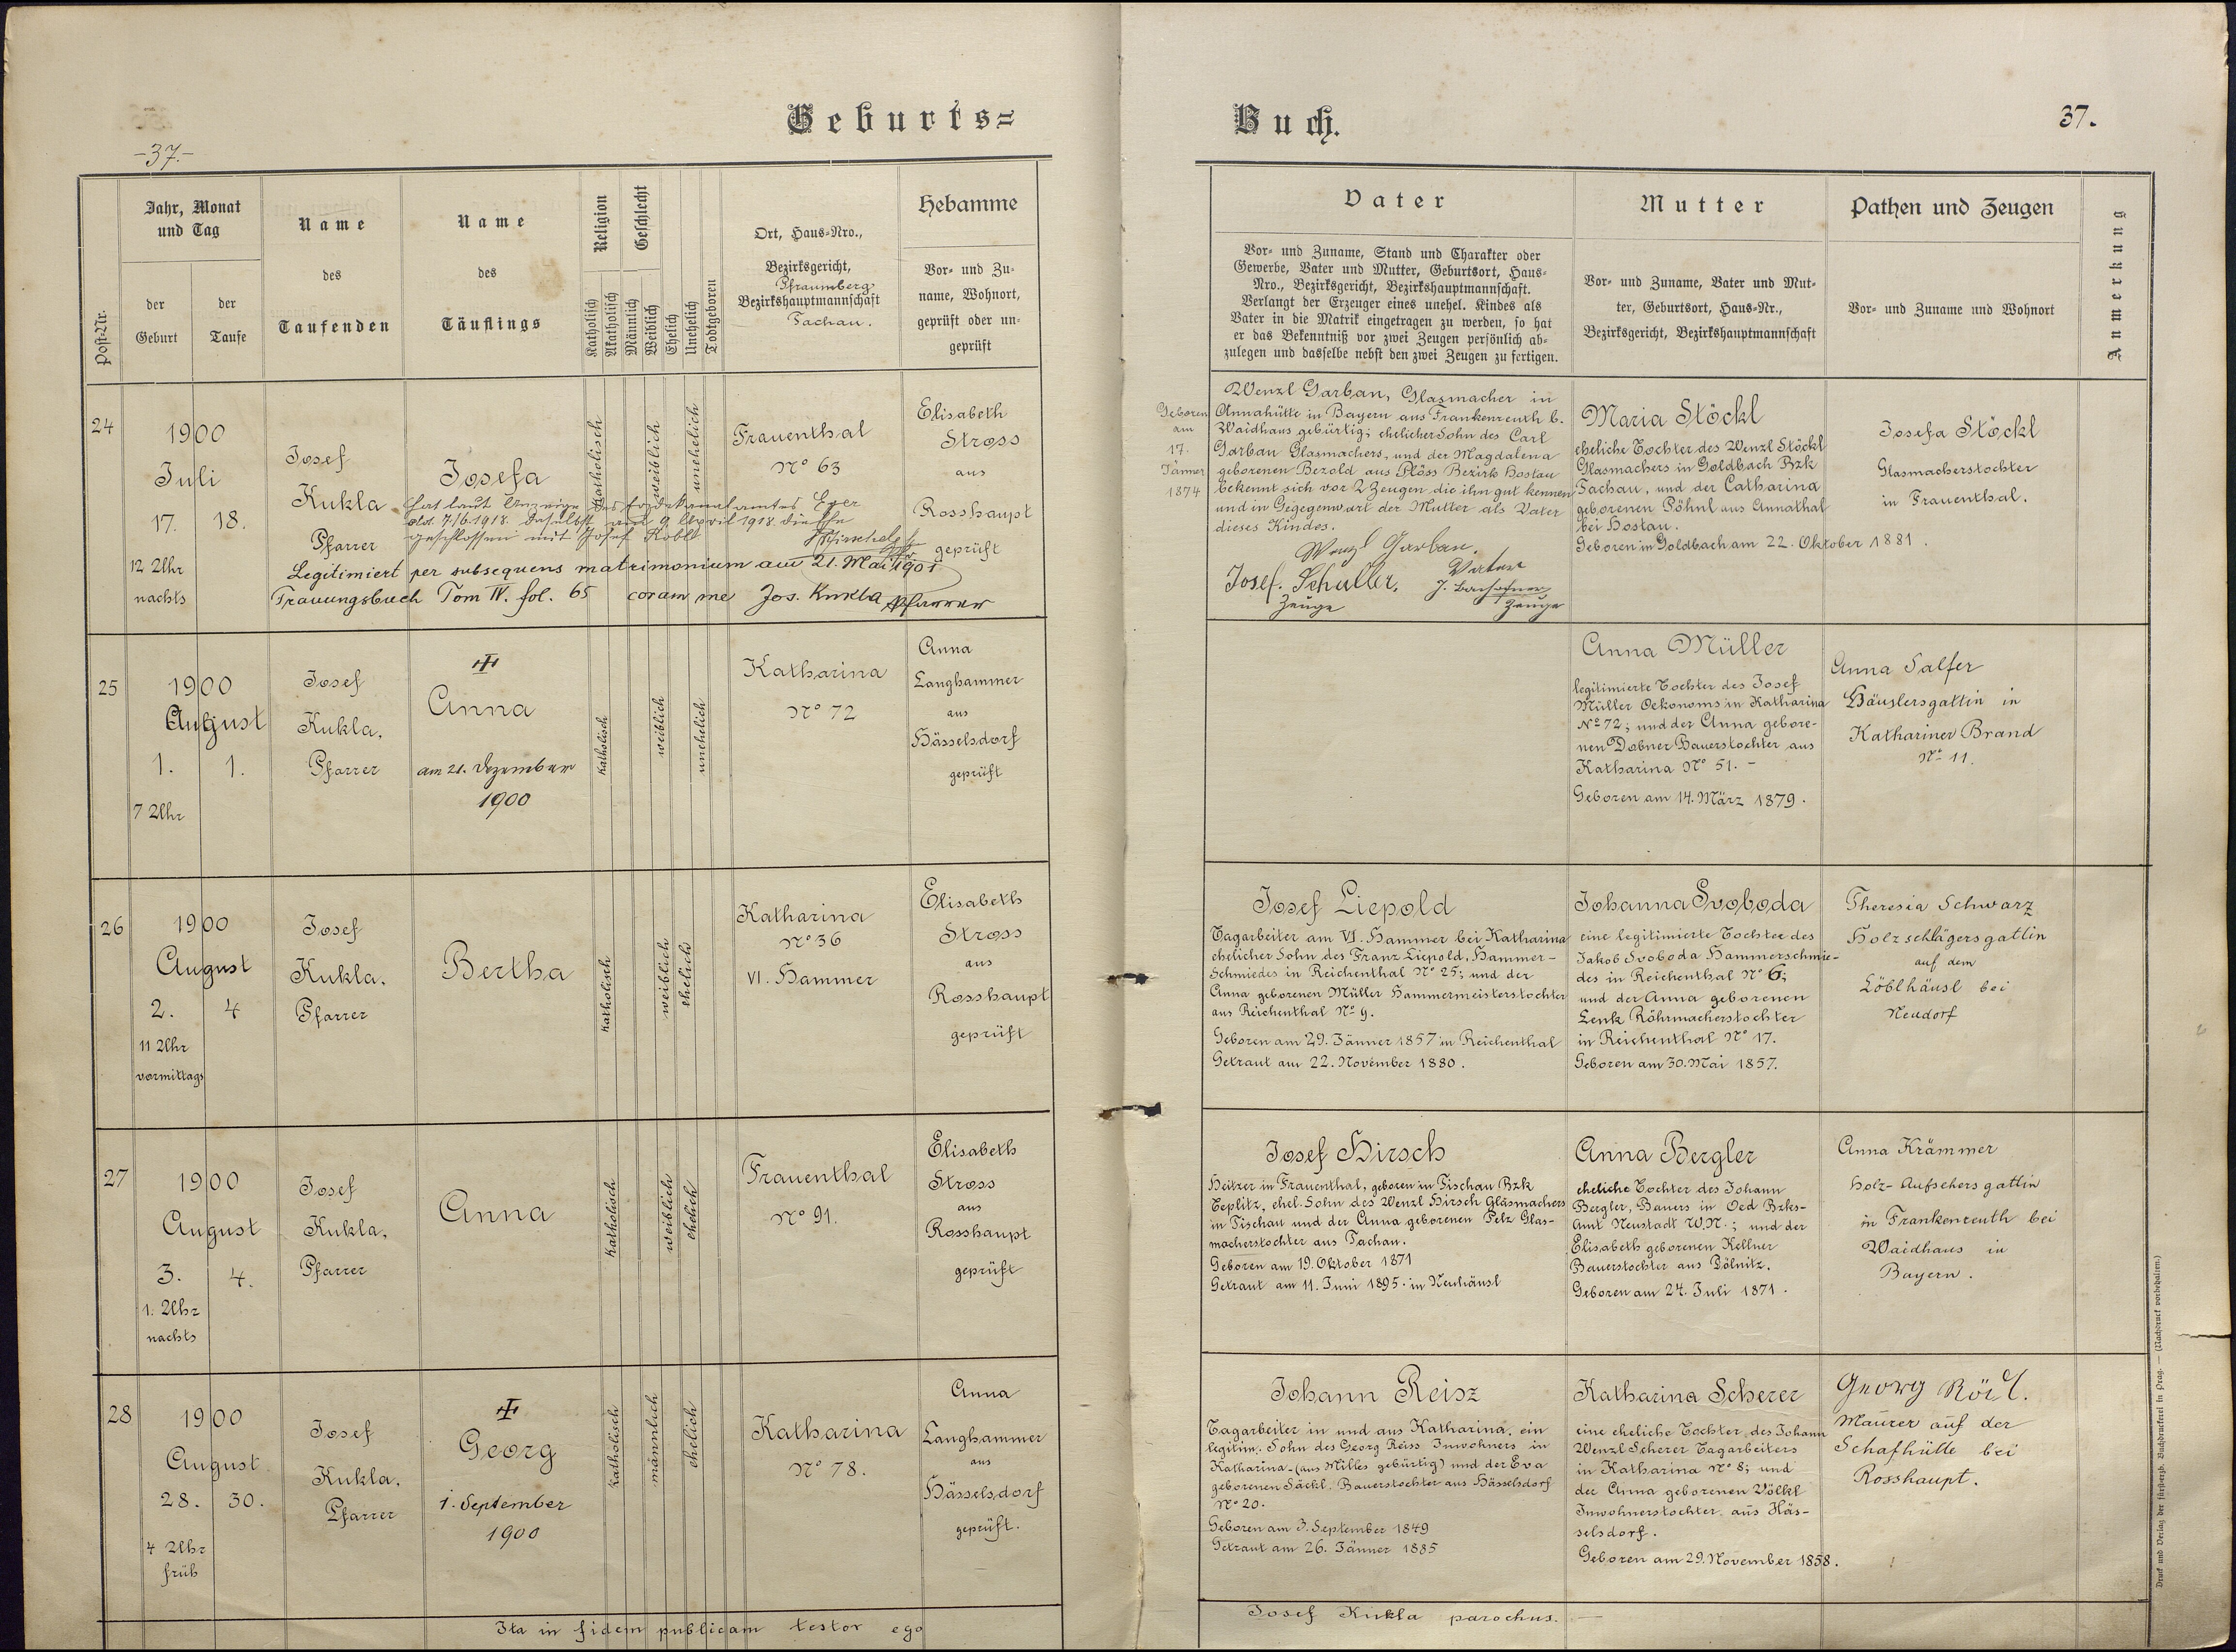 Geburts=
Buch.
-37.-
37.
Post-Nr.
Jahr, Monat
und Tag
der
Geburt
der
Taufe
Name
des
Taufenden
Name
des
Täuflings
Religion
Katholisch
Akatholisch
Geschlecht
Männlich
Weiblich
Ehelich
Unehelich
Todtgeboren
Ort, Haus-Nro.,
Bezirksgericht,
Pfraumberg
Bezirkshauptmannschaft
Tachau.
Hebamme
Vor- und Zu-
name, Wohnort,
geprüft oder un-
geprüft
Vater
Vor- und Zuname, Stand und Charakter oder
Gewerbe, Vater und Mutter, Geburtsort, Haus-
Nro., Bezirksgericht, Bezirkshauptmannschaft.
Verlangt der Erzeuger eines unehel. Kindes als
Vater in die Matrik eingetragen zu werden, so hat
er das Bekenntniß vor zwei Zeugen persönlich ab-
zulegen und dasselbe nebst den zwei Zeugen zu fertigen.
Mutter
Vor- und Zuname, Vater und Mut-
ter, Geburtsort, Haus-Nr.,
Bezirksgericht, Bezirkshauptmannschaft
Pathen und Zeugen
Vor- und Zuname und Wohnort
Anmerkung
24
1900
Juli
17. 18.
12 Uhr
nachts
Josef
Kukla
Pfarrer
Josefa
hat laut Anzeige des Erzdekanalamtes Eger
dto. 7/6.1918. daselbst am 9. April 1918 die Ehe
geschlossen mit Josef Köbl
Legitimiert per subsequens matrimonium am 21. Mai 1901
Trauungsbuch Tom IV. fol. 65 coram me Jos. Kukla Pfarrer
Katholisch
weiblich
unehelich
Frauenthal
No 63
Elisabeth
Stross
aus
Rosshaupt
geprüft
Geboren
am
17.
Jänner
1874
Wenzl Garban, Glasmacher in
Annahütte in Bayern aus Frankenreuth b.
Waidhaus gebürtig; ehelicher Sohn des Carl
Garban Glasmachers, und der Magdalena
geborenen Bezold aus Plöss Bezirk Hostau
bekennt sich vor 2 Zeugen die ihn gut kennen
und in Gegegenwart der Mutter als Vater
dieses Kindes.
Wenzl Garban.
Vater
Josef. Schuller,
Zeuge
J. Bachofner
Zeuge
Maria Stöckl
eheliche Tochter des Wenzl Stöckl
Glasmachers in Goldbach Bzk
Tachau, und der Catharina
geborenen Pöhnl aus Annathal
bei Hostau.
Geboren in Goldbach am 22. Oktober 1881.
Josefa Stöckl
Glasmacherstochter
in Frauenthal.
25
1900
August
1. 1.
7 Uhr
Josef
Kukla,
Pfarrer
Anna
am 21. Dezember
1900
Katholisch
weiblich
unehelich
Katharina
No 72
Anna
Langhammer
aus
Hässelsdorf
geprüft
Anna Müller
legitimierte Tochter des Josef
Müller Oekonoms in Katharina
No 72; und der Anna gebore-
nen Dobner Bauerstochter aus
Katharina No 51. -
Geboren am 14. März 1879.
Anna Salfer
Häuslersgattin in
Kathariner Brand
No 11.
26
1900
August
2. 4
11 Uhr
vormittags
Josef
Kukla,
Pfarrer
Bertha
Katholisch
weiblich
ehelich
Katharina
No 36
VI. Hammer
Elisabeth
Stross
aus
Rosshaupt
geprüft
Josef Liepold
Tagarbeiter am VI. Hammer bei Katharina
ehelicher Sohn des Franz Liepold, Hammer-
schmiedes in Reichenthal No 25; und der
Anna geborenen Müller Hammermeisterstochter
aus Reichenthal No 9.
Geboren am 29. Jänner 1857 in Reichenthal
Getraut am 22. November 1880.
Johanna Svoboda
eine legitimierte Tochter des
Jakob Svoboda Hammerschmie-
des in Reichenthal No 6;
und der Anna geborenen
Lenk Röhrmacherstochter
in Reichenthal No 17.
Geboren am 30. Mai 1857.
Theresia Schwarz
Holzschlägersgattin
auf dem
Löblhäusl bei
Neudorf
27
1900
August
3. 4.
1. Uhr
nachts
Josef
Kukla,
Pfarrer
Anna
Katholisch
weiblich
ehelich
Frauenthal
No 91.
Elisabeth
Stross
aus
Rosshaupt
geprüft
Josef Hirsch
Heitzer in Frauenthal, geboren in Tischau Bzk
Teplitz, ehel. Sohn des Wenzl Hirsch Glasmachers
in Tischau und der Anna geborenen Pelz Glas-
macherstochter aus Tachau.
Geboren am 19. Oktober 1871
Getraut am 11. Juni 1895. in Neuhäusl
Anna Bergler
eheliche Tochter des Johann
Bergler, Bauers in Oed Bzks-
Amt Neustadt W.N.; und der
Elisabeth geborenen Kellner
Bauerstochter aus Döllnitz.
Geboren am 24. Juli 1871.
Anna Krämmer
Holz-Aufsehersgattin
in Frankenreuth bei
Waidhaus in
Bayern.
28
1900
August
28. 30.
4 Uhr
früh
Josef
Kukla,
Pfarrer
Georg
1. September
1900
Katholisch
männlich
ehelich
Katharina
No 78.
Anna
Langhammer
aus
Hässelsdorf
geprüft.
Johann Reisz
Tagarbeiter in und aus Katharina, ein
legitim. Sohn des Georg Reiss Inwohners in
Katharina-(aus Milles gebürtig) und der Eva
geborenen Säckl, Bauerstochter aus Hässelsdorf
No 20.
Geboren am 3. September 1849
Getraut am 26. Jänner 1885
Katharina Scherer
eine eheliche Tochter des Johann
Wenzl Scherer Tagarbeiters
in Katharina No 8; und
der Anna geborenen Völkl
Inwohnerstochter aus Häs-
selsdorf.
Geboren am 29. November 1858.
Georg Rödl.
Maurer auf der
Schafhütte bei
Rosshaupt.
Ita in fidem publicam testor ego
Josef Kukla parochus.
Druck und Verlag der fürsterzb. Buchdruckerei in Prag. — (Nachdruck vorbehalten.)